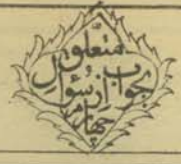 متعلق
بجواب از سؤال
چهارم